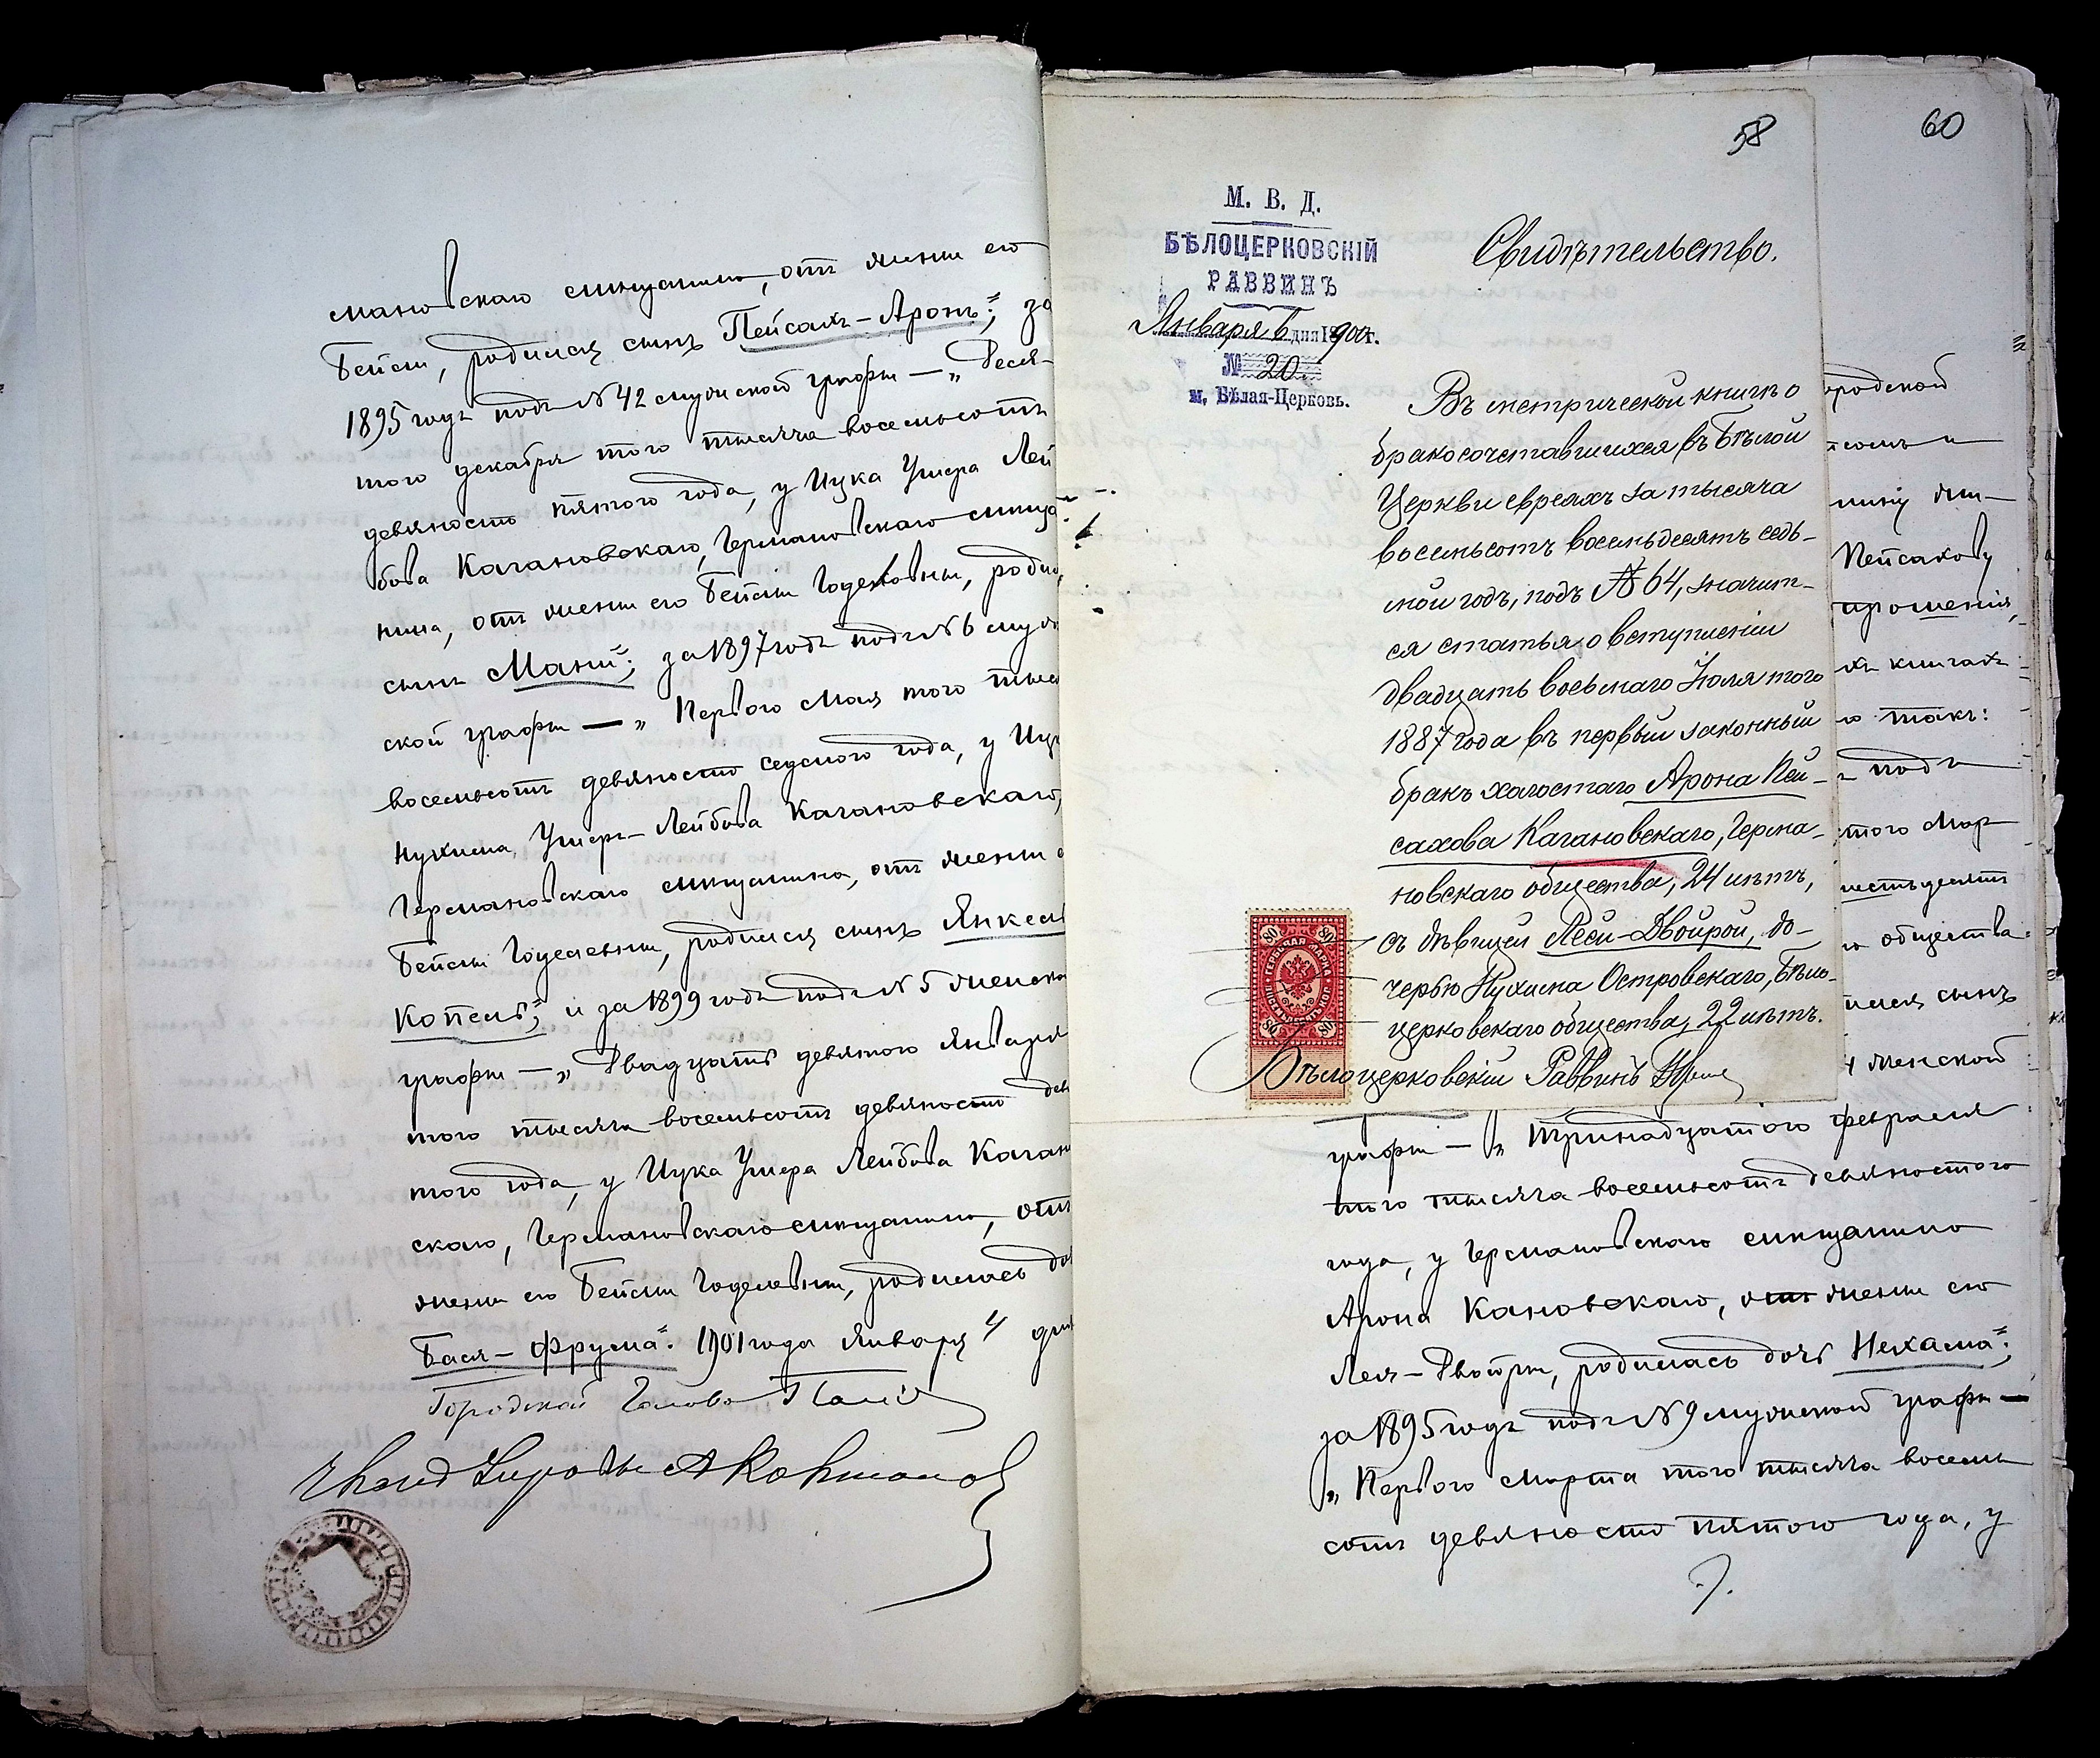 мановскаго мѣщанина, отъ жены его
Бейлы, родился сынъ Пейсахъ-Аронъ"; за
1895 годъ подъ № 42 мужской графы — „Деся-
таго декабря того тысяча восемьсотъ
девяносто пятого года, у Ицка Ушера Лей
бова Кагановскаго, Германовскаго мѣща
нина, отъ жены его Бейлы Годелевны, роди
сынъ Мани"; за 1897 годъ подъ № 6 муж
ской графы — „Первого Мая того тыся
восемьсотъ девяносто седмого года, у Иц
Нухима Ушера-Лейбова Кагановскаго,
Германовскаго мѣщанина, отъ жены е
Бейлы Годелевны, родился сынъ Янкель
Копель"; и за 1899 годъ подъ № 5 женской
графы — „Двадцать девятого Января
того тысяча восемьсотъ девяносто дев
того года, у Ицка Ушера Лейбова Каган
скаго, Германовскаго мѣщанина, отъ
жены его Бейлы Годелевны, родилась до
Бася-Фрума". 1901 года Января 4 дня
Городской Голова
58
60
М. В. Д.
БѢЛОЦЕРКОВСКІЙ
РАВВИНЪ
Января 6 дня 1900 г.
№ 20
м. Бѣлая-Церковь.
Свидѣтельство.
Въ метрической книгѣ о
бракосочетавшихся въ Бѣлой
Церкви евреяхъ за тысяча
восемьсотъ восемьдесятъ седь-
мой годъ, подъ № 64, значит-
ся статья о вступленіи
двадцать восьмаго Іюля того
1887 года въ первый законный
бракъ холостаго Арона Пей-
сахова Кагановскаго, Герма-
новскаго общества, 24 лѣтъ,
съ дѣвицей Леей-Двойрой, до-
черью Нухима Островскаго, Бѣло-
церковскаго общества, 22 лѣтъ.
Бѣлоцерковскій Раввинъ
80 80
ГЕРБОВАЯ МАРКА
80 80
ородской
нину жи-
Пейсахову
прошенія,
хъ книгахъ
о такъ:
подъ
того Мар
шестьдесятъ
о общества
ился сынъ
женской
графы — „Тринадцатого февраля
того тысяча восемьсотъ девяностого
года, у Германовскаго мѣщанина
Арона Кановскаго, отъ жены его
Леи-Двойры, родилась дочь Нехама";
за 1895 годъ подъ № 9 мужской графы —
„Первого Марта того тысяча восемь
сотъ девяносто пятого года, у